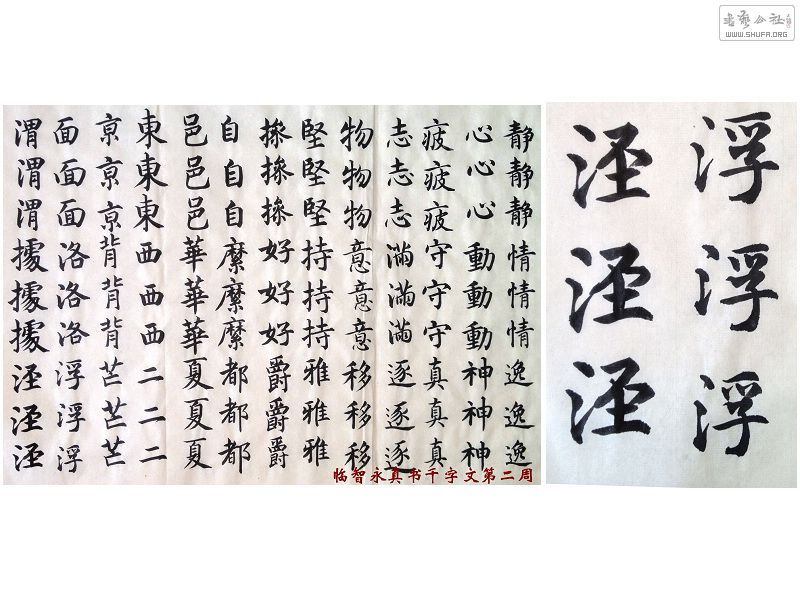 静静静情情情逸逸逸
心心心動動動神神神
疲疲疲守守守真真真
志志志滿滿滿逐逐逐
物物物意意意移移移
堅堅堅持持持雅雅雅
操操操好好好爵爵爵
自自自縻縻縻都都都
邑邑邑華華華夏夏夏
東東東西西西二二二
京京京背背背芒芒芒
面面面洛洛洛浮浮浮
渭渭渭據據據涇涇涇
临智永真书千字文第二周
浮浮浮
涇涇涇
书艺公社
WWW.SHUFA.ORG